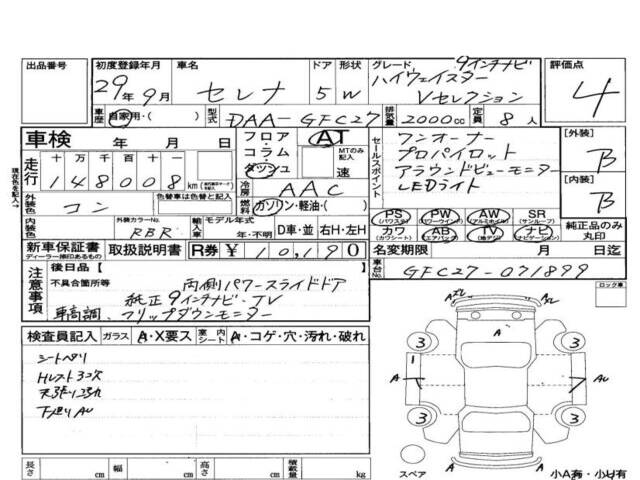 出品番号
初度登録年月 29年9月
車名 セレナ
ドア 5 形状 W
グレード 9インチナビ
ハイウェイスター
Vセレクション
評価点 4
車歴 自家用・( )
型式 DAA-GFC27
排気量 2000cc
定員 8人
車検 年 月 日
フロア・コラム・ダッシュ
AT
MTのみ記入 速
セールスポイント
ワンオーナー
プロパイロット
アラウンドビューモニター
LEDライト
[外装] B
[内装] B
現在色を記入→
走行 十万千百十一
148008km
冷房 AAC
外装色 コン
色替車は色替と記入
燃料 ガソリン・軽油・( )
PS (パワステ) PW (パワーウインドウ) AW (アルミホイル) SR (サンルーフ)
カワ (カワシート) AB (エアバック) TV (地デジ) ナビ (ナビゲーション)
純正品のみ丸印
内装色
外装カラーNo. RBR
輸入車 モデル年式 年・不明
D車・並 右H・左H
新車保証書 ディーラー捺印あるもの
取扱説明書
R券 ¥10,190
名変期限 月 日迄
車台No. GFC27-071899
注意事項
後日品 [ ]
不具合箇所等 両側パワースライドドア
純正9インチナビ、TV
車高調、フリップダウンモニター
ロック車
検査員記入 ガラス A・X要ス 室内シート A・コゲ・穴・汚れ・破れ
シートヘリ
天張リヨゴレ
下廻りAU
A
3 3
A AU
3 3
A A
スペア
小A有・小U有
長さ cm 幅 cm 高さ cm 積載量 kg